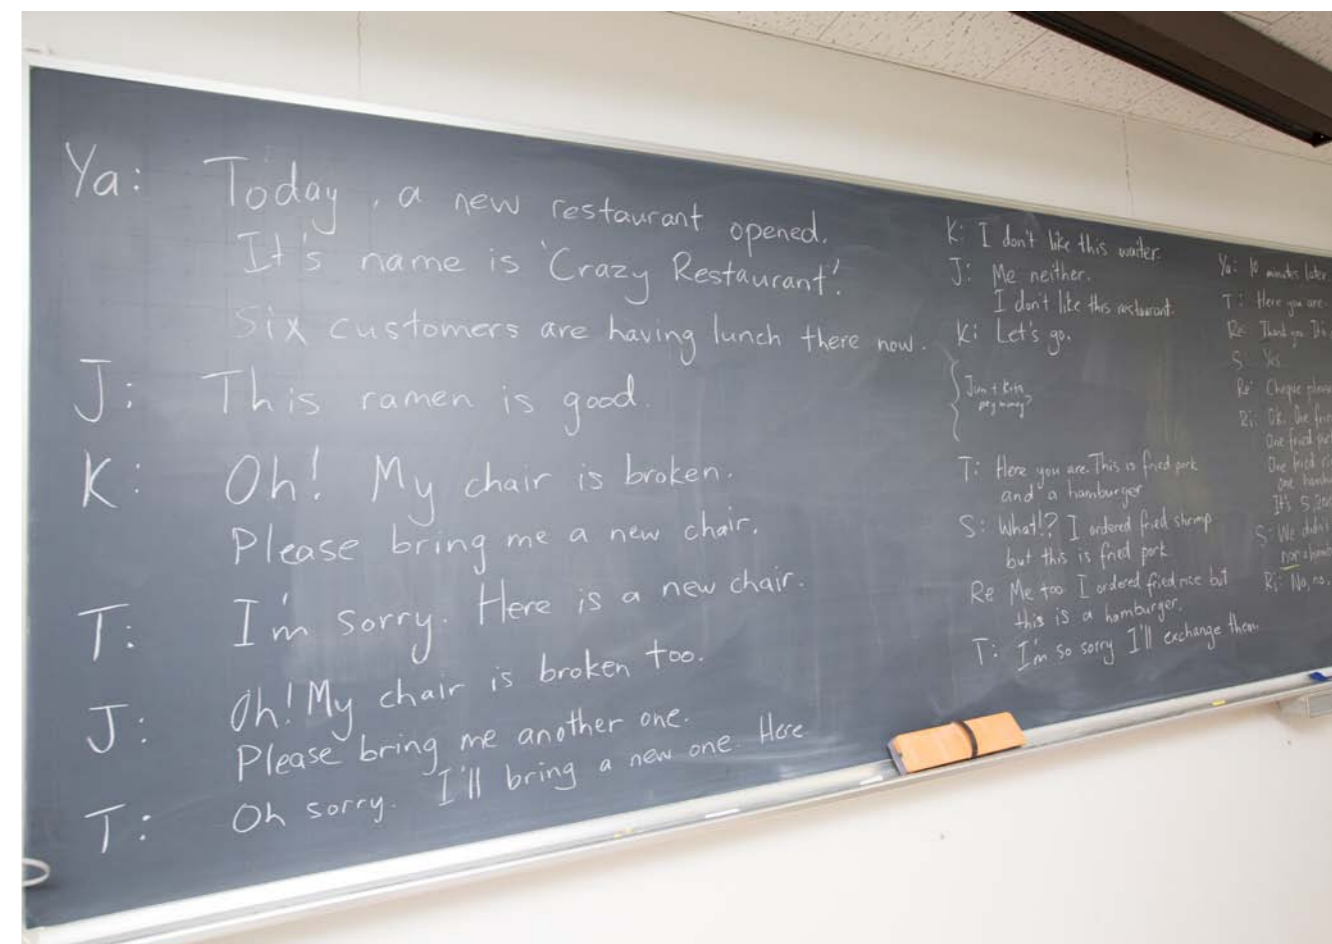 Ya: Today, a new restaurant opened.
It's name is 'Crazy Restaurant'.
Six customers are having lunch there now.
J: This ramen is good.
K: Oh! My chair is broken.
Please bring me a new chair.
T: I'm sorry. Here is a new chair.
J: Oh! My chair is broken too.
Please bring me another one.
T: Oh sorry. I'll bring a new one. Here
K: I don't like this waiter.
J: Me neither.
I don't like this restaurant.
K: Let's go.
Jun + Kita
pay money?
T: Here you are. This is fried pork
and a hamburger
S: What!? I ordered fried shrimp
but this is fried pork
Re Me too I ordered fried rice but
this is a hamburger.
T: I'm so sorry I'll exchange them.
Ya: 10 minutes later
T: Here you are.
Re: Thank you.
S: Yes
Re: Cheque please
Ri: OK. One
One fried
One fried
one
It's
S: We
Ri: No, no,